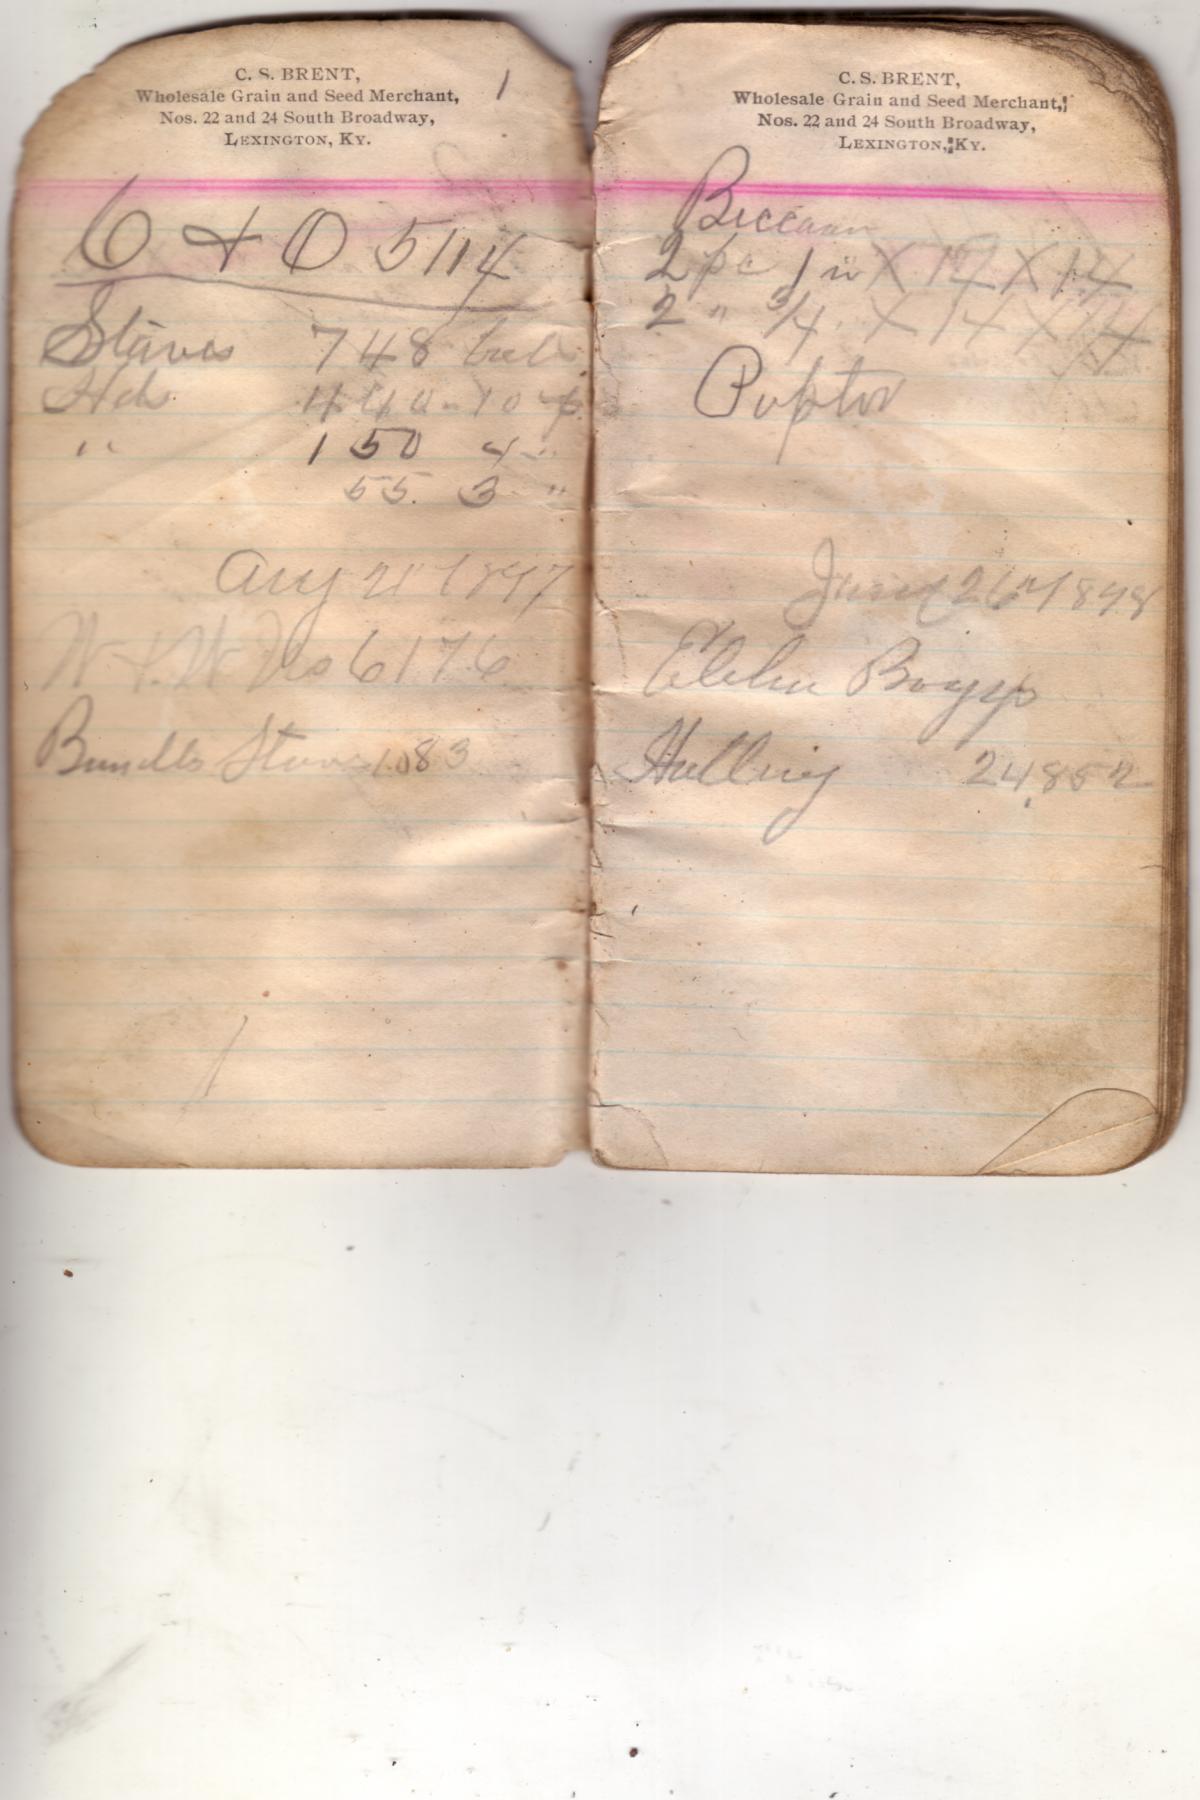 C. S. BRENT,
Wholesale Grain and Seed Merchant,
Nos. 22 and 24 South Broadway,
LEXINGTON, KY.
1
C & O 5114
Staves 748
Hds 440 10 p
" 150 4 "
55. 3 "
Aug 21 1897
N & W No 6176
Bundls Staves 1083
C. S. BRENT,
Wholesale Grain and Seed Merchant,
Nos. 22 and 24 South Broadway,
LEXINGTON, KY.
2 pc 1 in X 12 X 14
2 " 3/4 X 14 X 14
26 1898
Boggs
24,852